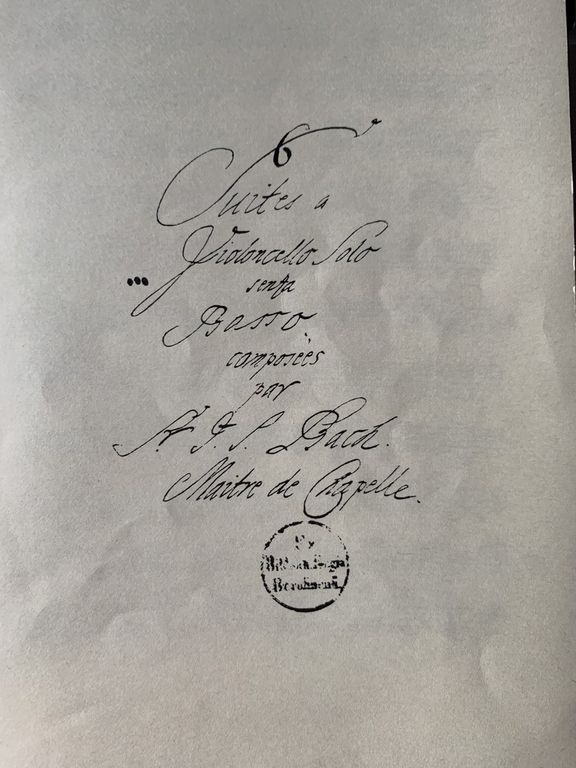 6
Suites a
Violoncello Solo
senza
Basso
composées
par
Sr. J. S. Bach.
Maitre de Chapelle.
Ex
Biblioth. Regia
Berolinensi